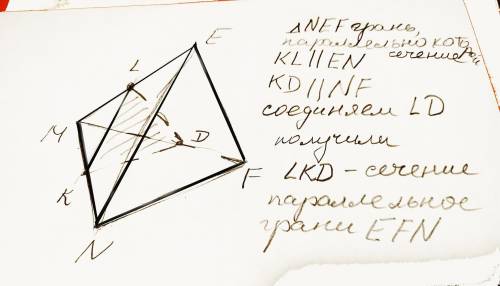 E
L
M
D
K
F
N
△NEF грань,
параллельно которой
KL||EN сечение
KD||NF
соединяем LD
получили
LKD - сечение
параллельное
грани EFN